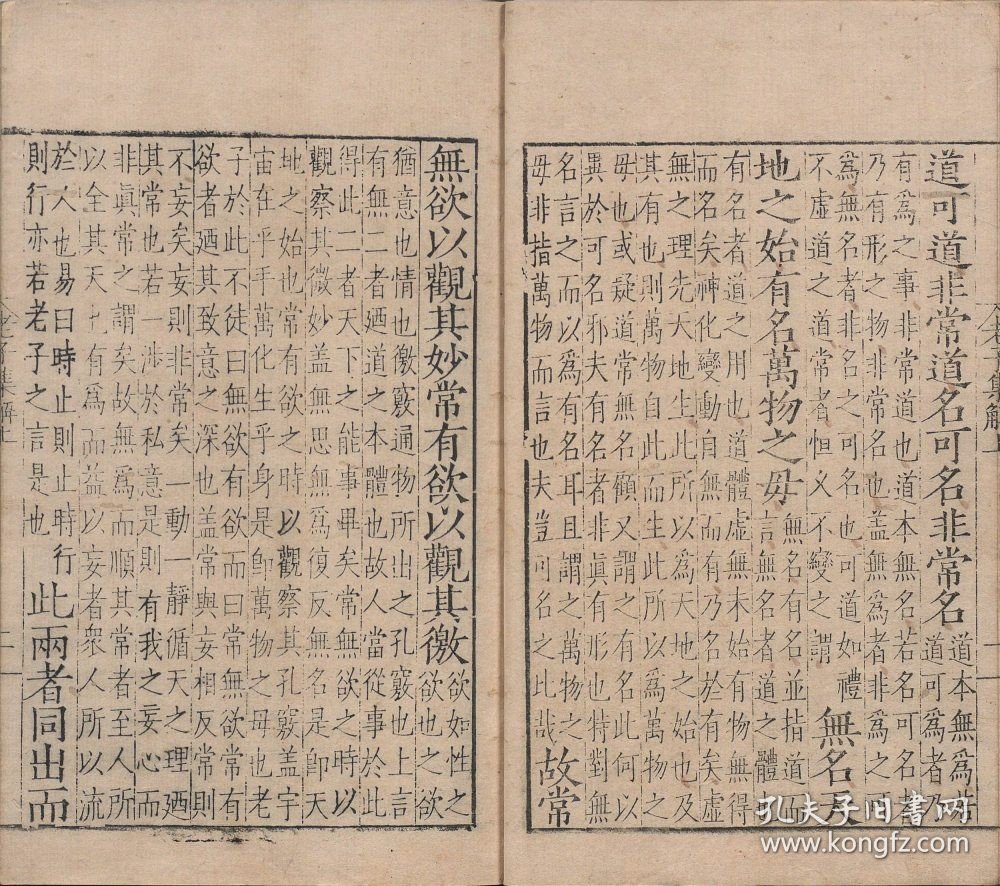 道可道非常道名可名非常名道本無爲若
道可爲者乃
有爲之事非常道也道本無名若名可名者
乃有形之物非常名也盖無爲者非爲之可
爲無名者非名之可名也可道如禮
不虛道之道常者恒久不變之謂
無名天
地之始有名萬物之毋無名有名並指道而
言無名者道之體
有名者道之用也道體虛無未始有物無得
而名矣神化變動自無而有乃名於有矣虛
無之理先天地生此所以爲天地之始也及
其有也則萬物自此而生此所以爲萬物之
毋也或疑道常無名顧又謂之有名此何以
異於可名邪夫有名者非眞有形也特對無
名言之而以爲有名耳且謂之萬物之
毋非指萬物而言也夫豈可名之比哉
故常
無欲以觀其妙常有欲以觀其徼欲如性之
欲也之欲
猶意也情也徼竅通物所出之孔竅也上言
有無二者廼道之本體也故人當從事於此
得此二者天下之能事畢矣常無欲之時以
觀察其微妙盖無思無爲復反無名是卽天
地之始也常有欲之時以觀察其孔竅盖宇
宙在乎手萬化生乎身是卽萬物之毋也老
子於此不徒曰無欲有欲而曰常無欲常有
欲者廼其致意之深也盖常與妄相反常則
不妄矣妄則非常矣一動一靜循天之理廼
其常也若一涉於私意是則有我之妄心而
非眞常之謂矣故無爲而順其常者至人所
以全其天也有爲而益以妄者衆人所以流
於人也易曰時止則止時行
則行亦若老子之言是也
此兩者同出而
老子集解上
二
老子集解上
一
孔夫子旧书网
www.kongfz.com